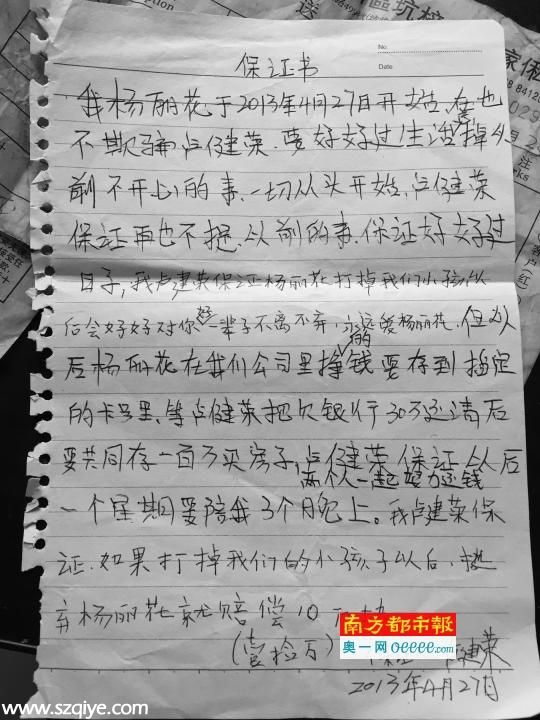 No.
Date
保证书
我杨丽花于2013年4月27日开始,在也
不欺骗卢健荣.要好好过生活,掉从
前不开心的事.一切从头开始,卢健荣
保证再也不提,从前的事.保证好好过
日子,我卢健荣保证杨丽花打掉我们小孩以
后会好好对你好一辈子不离不弃,永远爱杨丽花.但以
后杨丽花在我们公司里挣的钱要存到指定
的卡号里,等卢健荣把欠银行30万还清后
要共同存一百万买房子,卢健荣保证从后
两个人一起努力还钱
一个星期要陪我3个晚上。我卢健荣保
证.如果打掉我们的小孩子以后.抛
弃杨丽花就赔偿10万
(壹拾万)
健荣
2013年4月27日
南方都市報
奥一网oeeee.com
www.szqiye.com